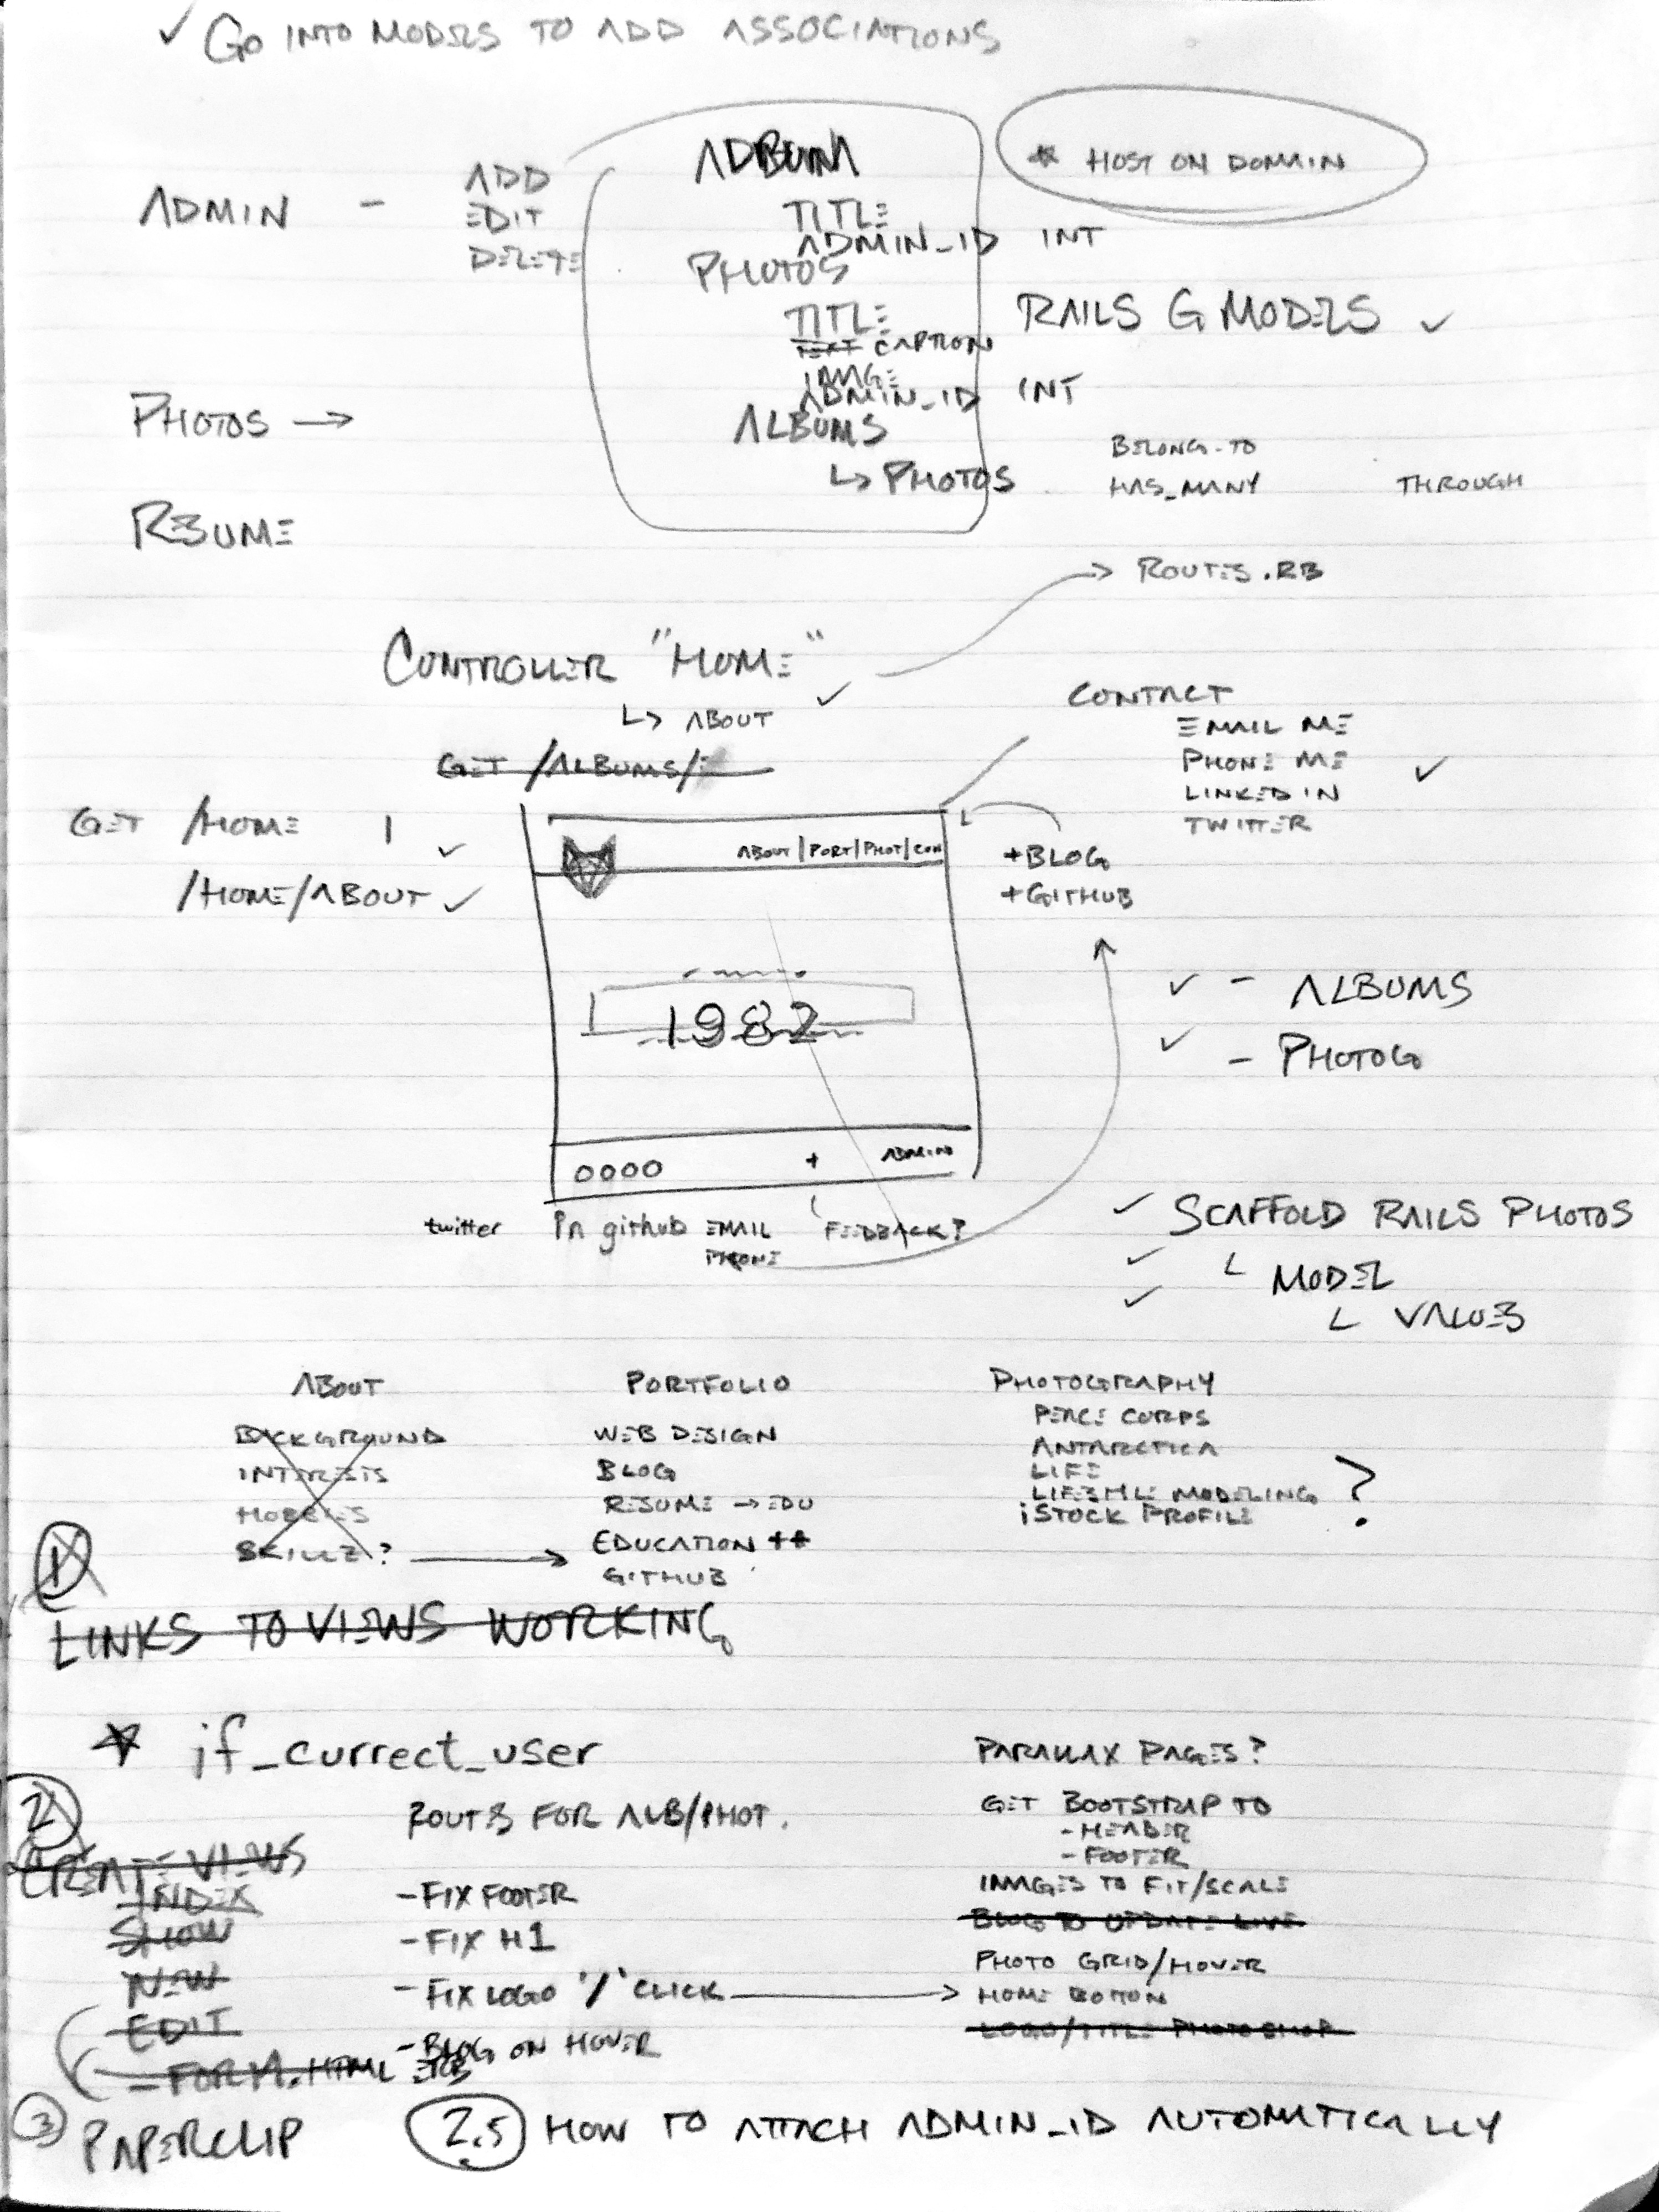 ✓ GO INTO MODELS TO ADD ASSOCIATIONS
ADMIN -
ADD
EDIT
DELETE
ALBUM
TITLE
ADMIN_ID INT
PHOTOS
TITLE
TEXT CAPTION
IMAGE
ADMIN_ID INT
ALBUMS
↳ PHOTOS
* HOST ON DOMAIN
RAILS G MODELS ✓
BELONG-TO
HAS_MANY THROUGH
PHOTOS →
RESUME
→ ROUTES.RB
CONTROLLER "HOME"
↳ ABOUT ✓
GET /ALBUMS/
GET /HOME ✓
/HOME/ABOUT ✓
CONTACT
EMAIL ME
PHONE ME ✓
LINKEDIN
TWITTER
ABOUT | PORT | PHOT | CON
+BLOG
+GITHUB
1982
✓ - ALBUMS
✓ - PHOTOG
0000 + ADMIN
twitter in github EMAIL FEEDBACK?
PHONE
✓ SCAFFOLD RAILS PHOTOS
✓ ↳ MODEL
✓ ↳ VALUES
ABOUT
BACKGROUND
INTERESTS
HOBBIES
SKILLZ? →
PORTFOLIO
WEB DESIGN
BLOG
RESUME → EDU
EDUCATION ++
GITHUB
PHOTOGRAPHY
PEACE CORPS
ANTARCTICA
LIFE
LIFESTYLE MODELING ?
iSTOCK PROFILE
1
LINKS TO VIEWS WORKING
★ if_currect_user
2
CREATE VIEWS
INDEX
SHOW
NEW
EDIT
- FORM.HTML ERB
ROUTES FOR ALB/PHOT.
- FIX FOOTER
- FIX H1
- FIX LOGO '/' CLICK →
- BLOG ON HOVER
PARALLAX PAGES?
GET BOOTSTRAP TO
- HEADER
- FOOTER
IMAGES TO FIT/SCALE
BLOG TO UPDATE LIVE
PHOTO GRID/HOVER
HOME BOTTON
LOGO/TITLE PHOTOSHOP
3 PAPERCLIP
2.5 HOW TO ATTACH ADMIN_ID AUTOMATICALLY